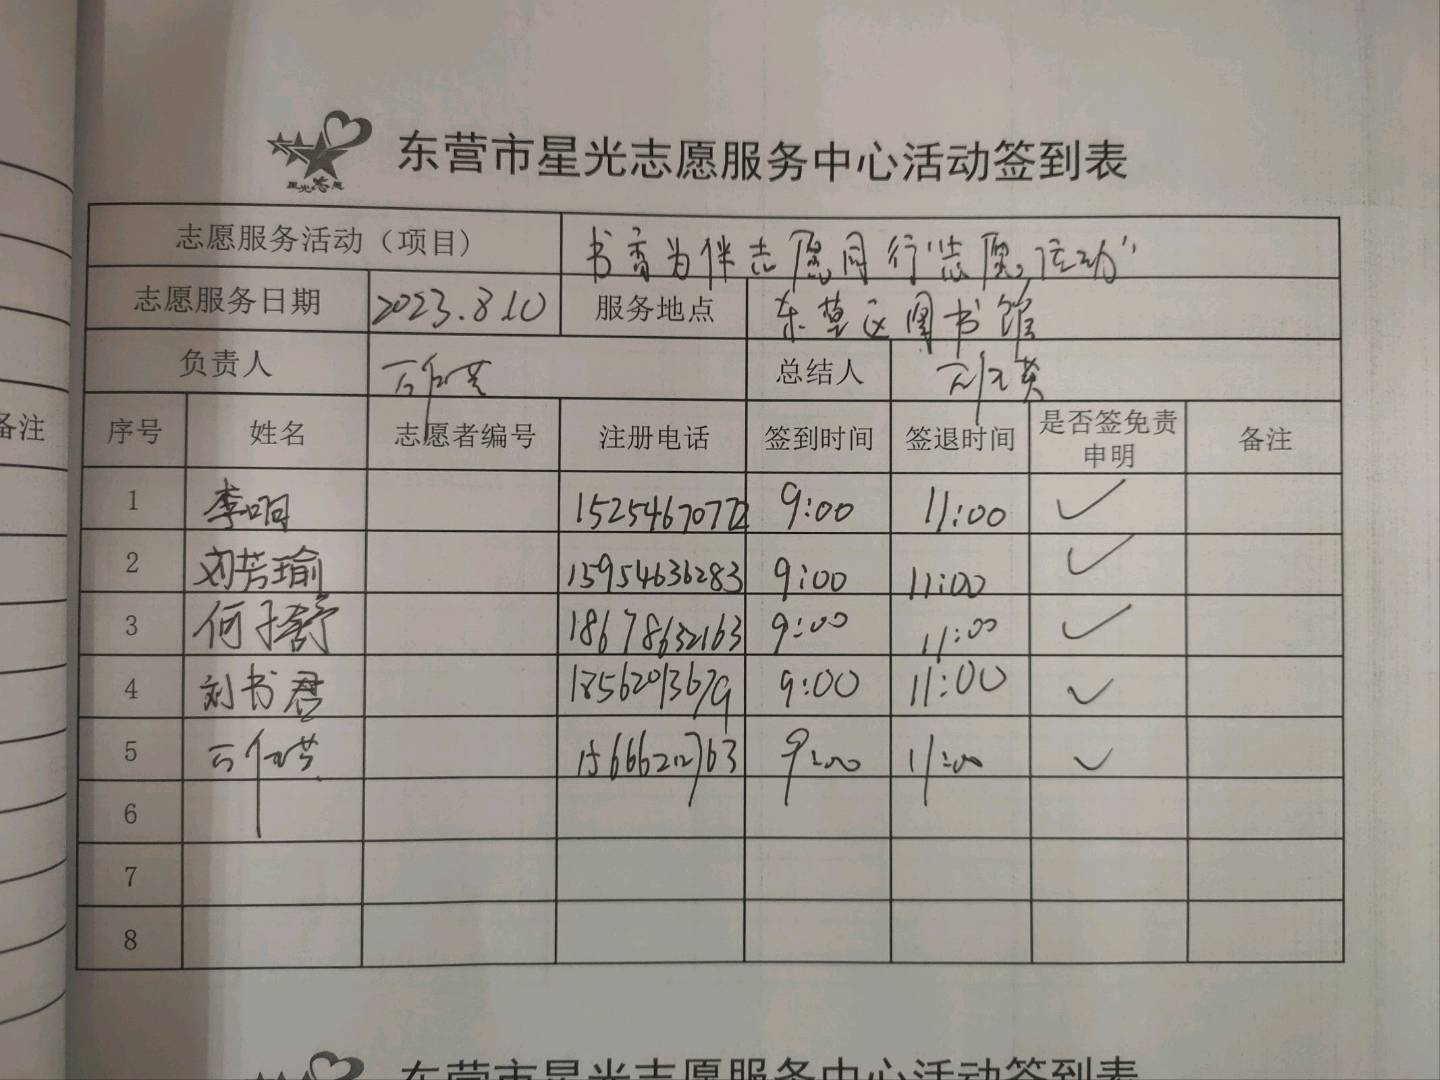 星光志愿
东营市星光志愿服务中心活动签到表
志愿服务活动（项目） 书香为伴志愿同行"志愿活动"
志愿服务日期 2023.8.10 服务地点 东营区图书馆
负责人 总结人
备注
序号 姓名 志愿者编号 注册电话 签到时间 签退时间 是否签免责申明 备注
1 李明 9:00 11:00 ✓
2 刘芳瑜 15954636283 9:00 11:00 ✓
3 何子舒 18678632163 9:00 11:00 ✓
4 刘书君 18562013679 9:00 11:00 ✓
5 9:00 11:00 ✓
6
7
8
东营市星光志愿服务中心活动签到表